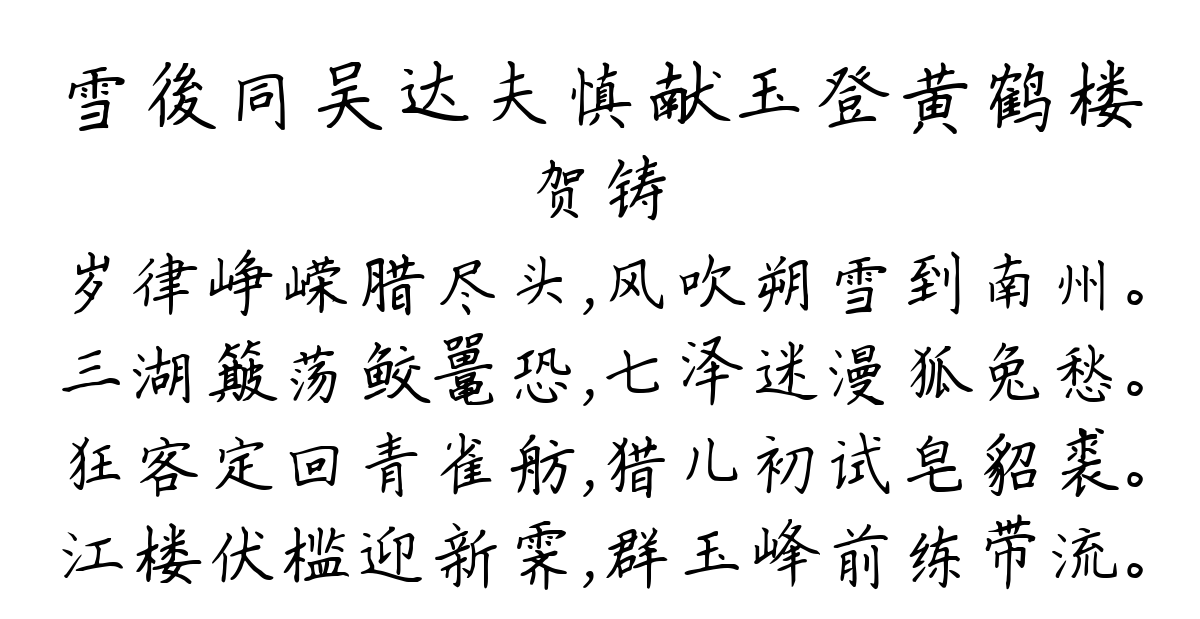 雪後同吴达夫慎献玉登黄鹤楼
贺铸
岁律峥嵘腊尽头,风吹朔雪到南州。
三湖簸荡鲛鼍恐,七泽迷漫狐兔愁。
狂客定回青雀舫,猎儿初试皂貂裘。
江楼伏槛迎新霁,群玉峰前练带流。